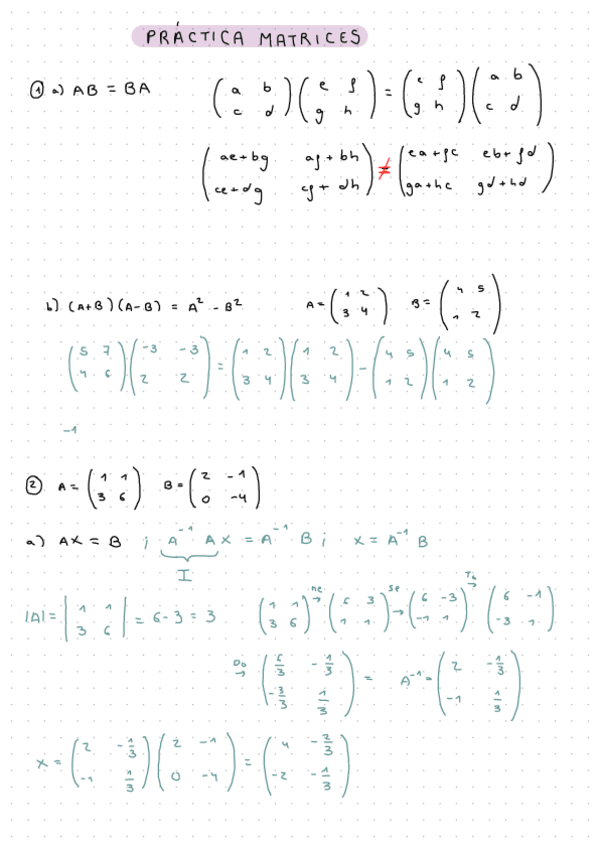 PRÁCTICA MATRICES
① a) AB = BA (a b; c d)(e f; g h) = (e f; g h)(a b; c d)
(ae+bg af+bh; ce+dg cf+dh) ≠ (ea+fc eb+fd; ga+hc gd+hd)
b) (A+B)(A-B) = A² - B² A = (1 2; 3 4) B = (4 5; 1 2)
(5 7; 4 6)(-3 -3; 2 2) = (1 2; 3 4)(1 2; 3 4) - (4 5; 1 2)(4 5; 1 2)
-1
② A = (1 1; 3 6) B = (2 -1; 0 -4)
a) AX = B ; A⁻¹ AX = A⁻¹ B ; X = A⁻¹ B
I
|A| = |1 1; 3 6| = 6-3 = 3 (1 1; 3 6) → (6 3; 1 1) → (6 -3; -1 1) → (6 -1; -3 1)
→ (6/3 -1/3; -3/3 1/3) = A⁻¹ = (2 -1/3; -1 1/3)
X = (2 -1/3; -1 1/3)(2 -1; 0 -4) = (4 -2/3; -2 -1/3)